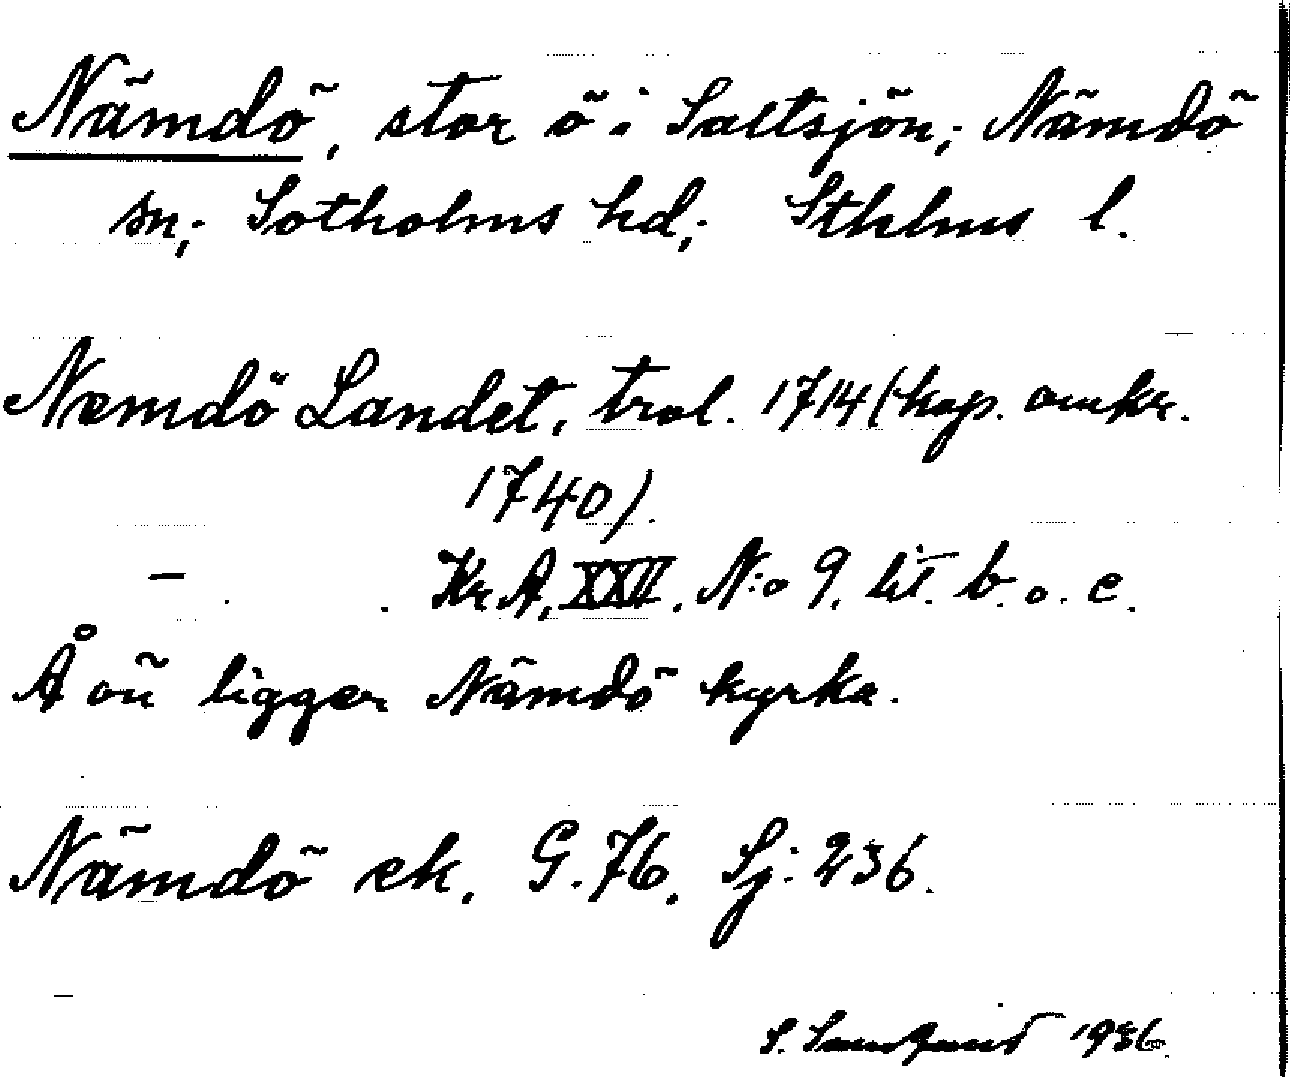 Nämdö, stor ö i Saltsjön; Nämdö
sn; Sotholms hd; Sthlms l.
Nemdö Landet, trol. 1714 (kop. omkr.
1740).
— Kr.A. XXII. N:o 9. lit. b. o. c.
Å ön ligger Nämdö kyrka.
Nämdö ek. G. 76. Sj: 236.
S. 1936.